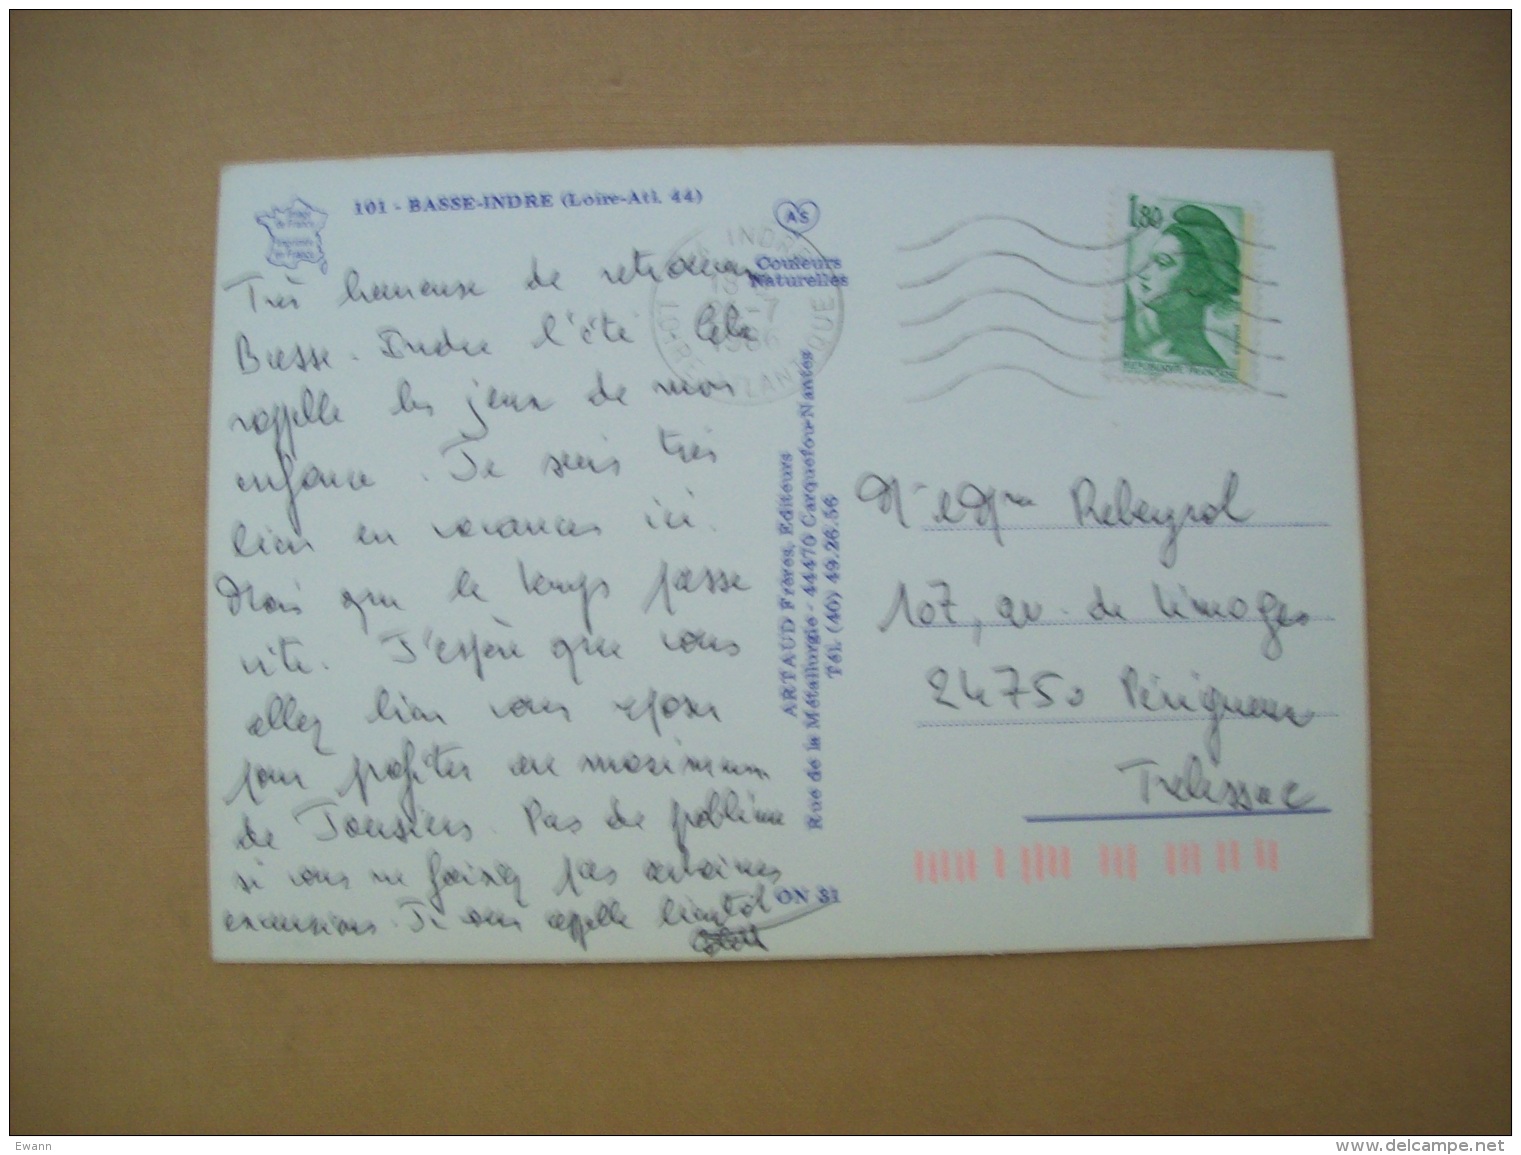 101 - BASSE-INDRE (Loire-Atl. 44)
Image
de France
Imprimée
en France
AS
Couleurs
Naturelles
INDRE
LOIRE ATLANTIQUE
-7
1986
1,80
REPUBLIQUE FRANÇAISE
Très heureuse de retrouver
Basse-Indre l'été. Cela
rappelle les jeux de mon
enfance. Je suis très
bien en vacances ici.
Mais que le temps passe
vite. J'espère que vous
allez bien vous reposer
pour profiter au maximum
de Tonsiens. Pas de problème
si vous ne faisez pas certaines
excursions. Je vous appelle bientôt
ARTAUD Frères, Editeurs
Rue de la Métallurgie - 44470 Carquefou-Nantes
Tél. (40) 49.26.56
ON 31
Mr et Mme Rebeyrol
107, av. de Limoges
24750 Périgueux
Trelissac
Ewann
www.delcampe.net